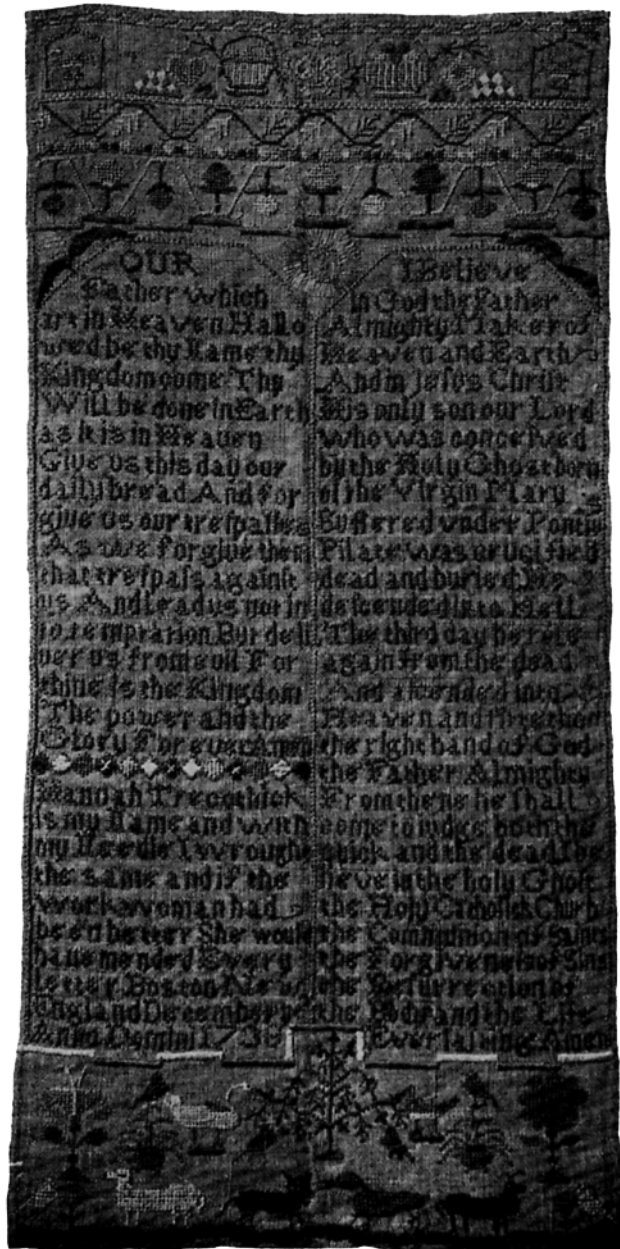 OUR
Father which
art in Heaven Hallo
wed be thy Name thy
Kingdom come Thy
Will be done in Earth
as it is in Heaven
Give us this day our
daily bread And for
give us our treſpaſses
As we forgive them
that treſpaſs against
us And lead us not in
to temptation But deli
ver us from evil For
thine is the Kingdom
The power and the
Glory For ever Amen
Hannah Trecothick
is my Name and with
my Needle I wrought
the same and if the
work woman had
been better She would
have mended Every
Letter Boston New
England December
Anno Domini 173
I Believe
in God the Father
Almighty Maker of
Heaven and Earth
And in Jesus Christ
His only son our Lord
Who was conceived
by the Holy Ghost born
of the Virgin Mary
Suffered vnder Pontius
Pilate was crucified
dead and buried He
descended into Hell
The third day he roſe
again from the dead
And aſcended into
Heaven and ſitteth on
the right hand of God
the Father Almighty
From thene he ſhall
come to iudge both the
quick and the dead I be
lieve in the holy Ghoſt
the Holy Catholick Church
the Communion of Saints
the Forgiveneſs of Sins
the Reſurrection of
the Body and the Life
Everlasting Amen